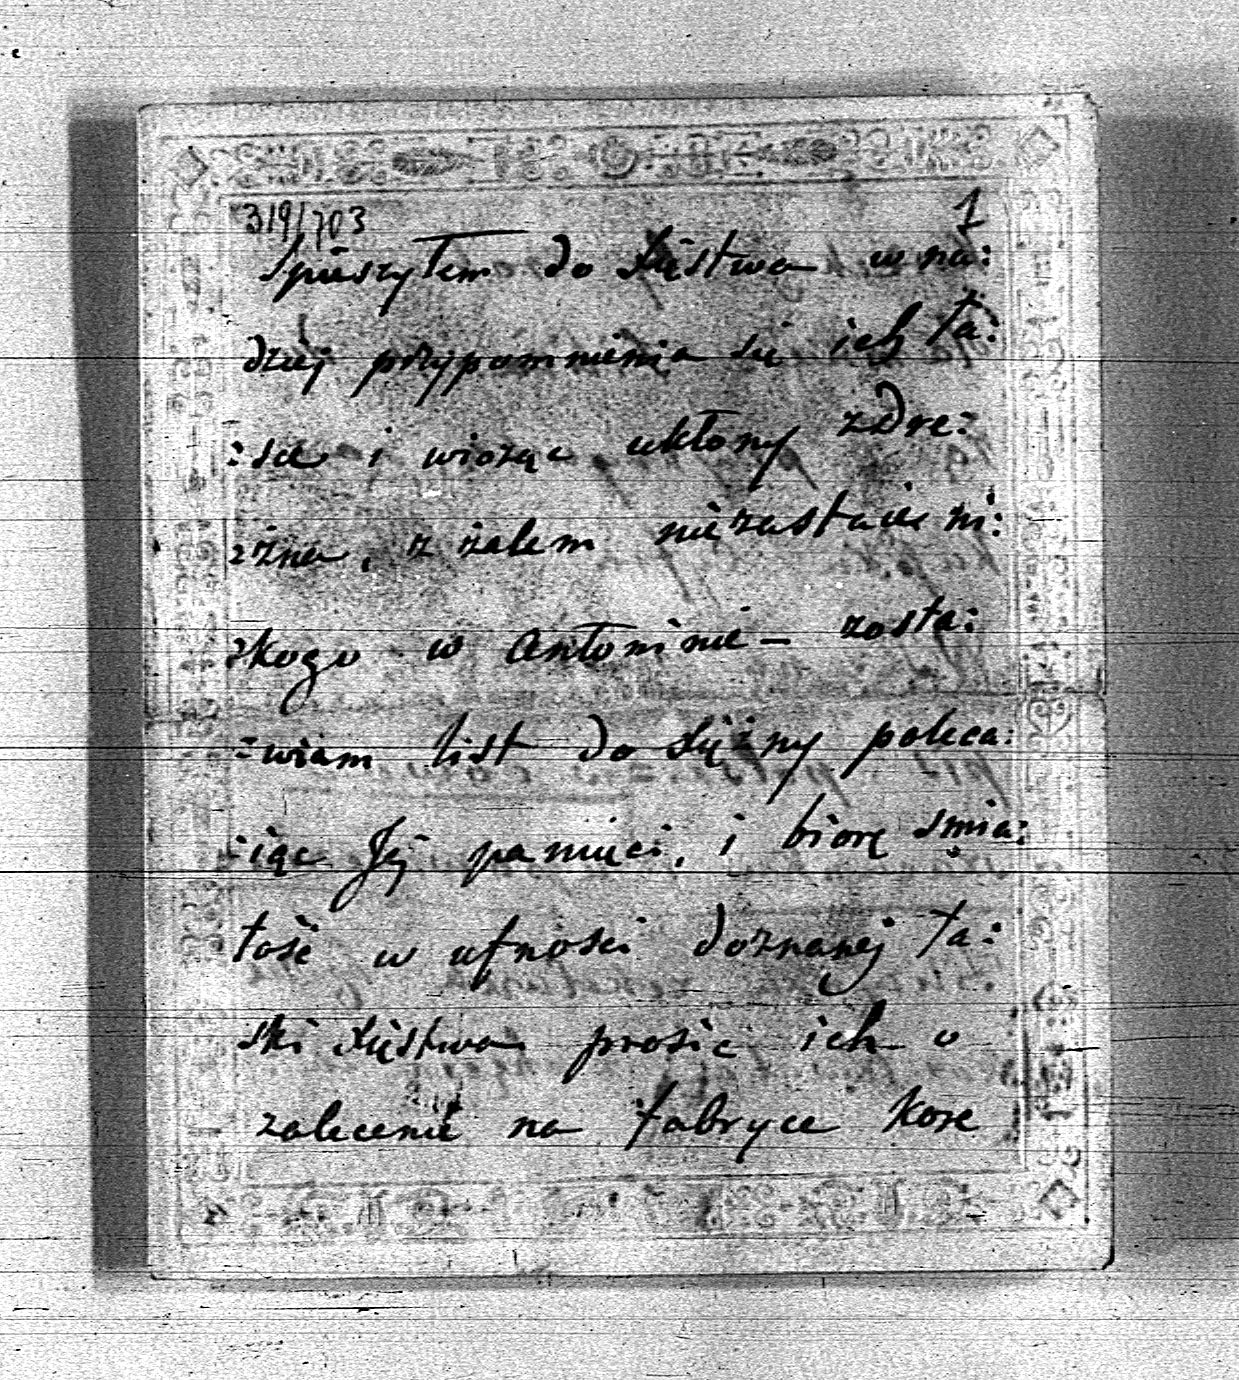 319/703 1
Spieszyłem do Xięstwa w na:
dziej przypomnienia się ich ła:
:sce i wioząc ukłony z Dre:
:zna, z żalem niezastaiem ni:
:kogo w Antoninie – zosta:
:wiam list do Xiężny poleca:
:iąc Jej pamięci, i biorę śmia:
łość w ufności doznanej ła:
ski Xięstwa prosić ich o
zalecenie na fabryce